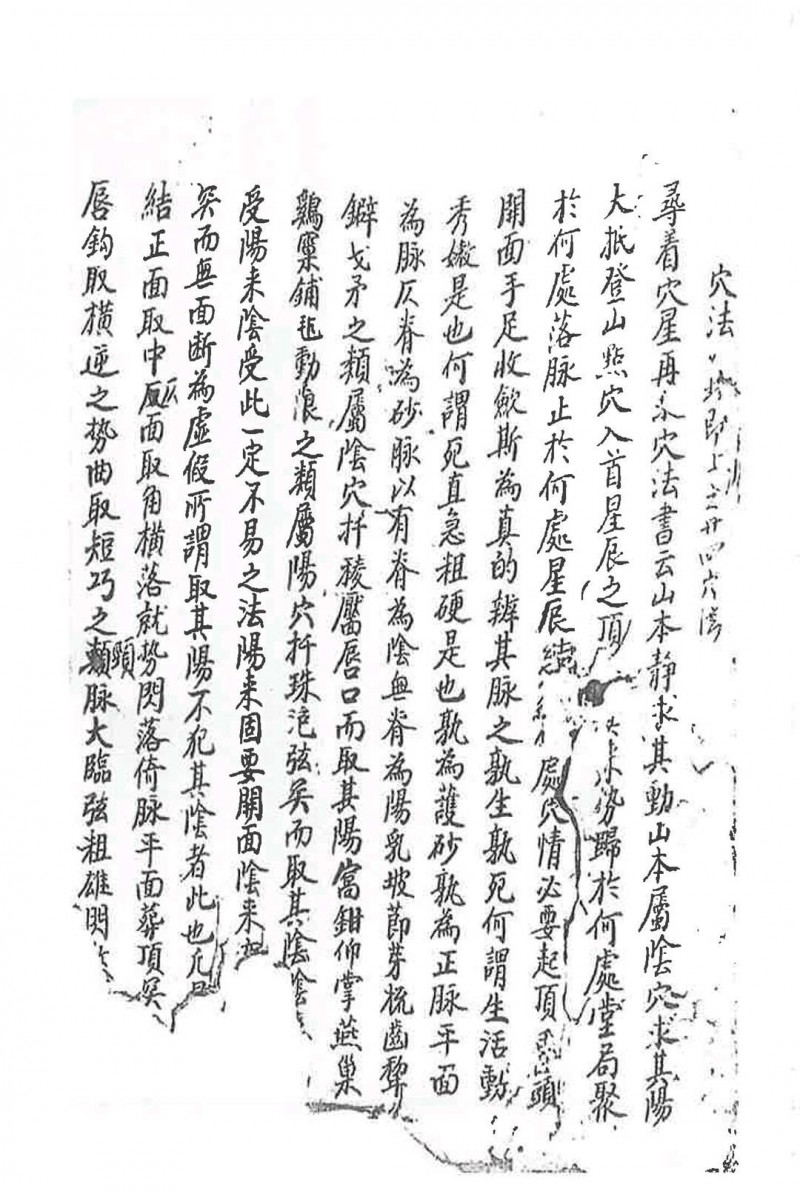 穴法 即上 廿四穴法
尋着穴星再 穴法書云山本靜求其動山本屬陰穴求其陽
大抵登山點穴入首星辰之頂 来势歸於何處堂局聚
於何處落脉止於何處星辰 處穴情必要起頂 頭
開面手足收歛斯為真的辨其脉之孰生孰死何謂生活動
秀嫩是也何謂死直急粗硬是也孰為護砂孰為正脉平面
為脉仄脊為砂脉以有脊為陰無脊為陽乳坡節芽梳齒犂
鐴戈矛之類屬陰穴扦稜靨唇口而取其陽窩鉗仰掌燕巢
鷄窠鋪毡動浪之類屬陽穴扦珠泡弦矣而取其陰陰
受陽来陰受此一定不易之法陽来固要開面陰来
矣而無面断為虛假所謂取其陽不犯其陰者此也凡
結正面取中仄面取角橫落就势閃落倚脉平面葬頂矣
唇鈎取橫逆之势曲取短巧之頸脉大臨弦粗雄閃